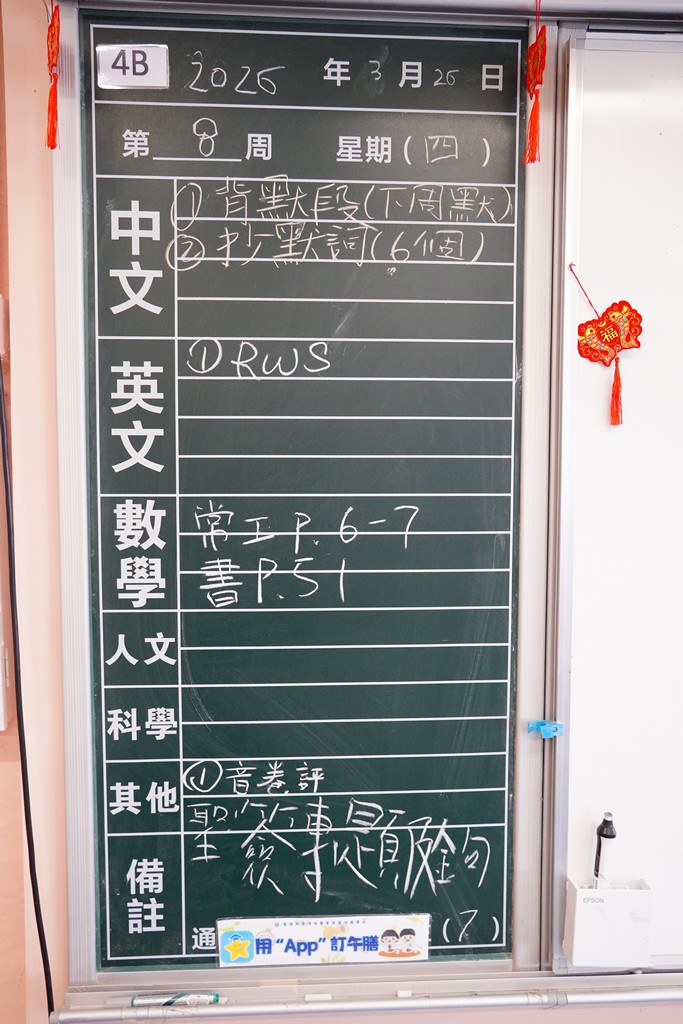 4B 2026 年 3 月 26 日
第 8 周 星期(四)
中文
① 背默段(下周默)
② 抄默詞(6個)
英文
① RWS
數學
常工 P. 6-7
書 P.51
人文
科學
其他
① 音卷評
聖 簽 事 題 除 句
備註
通
用“App”訂午膳
(7)
福
EPSON